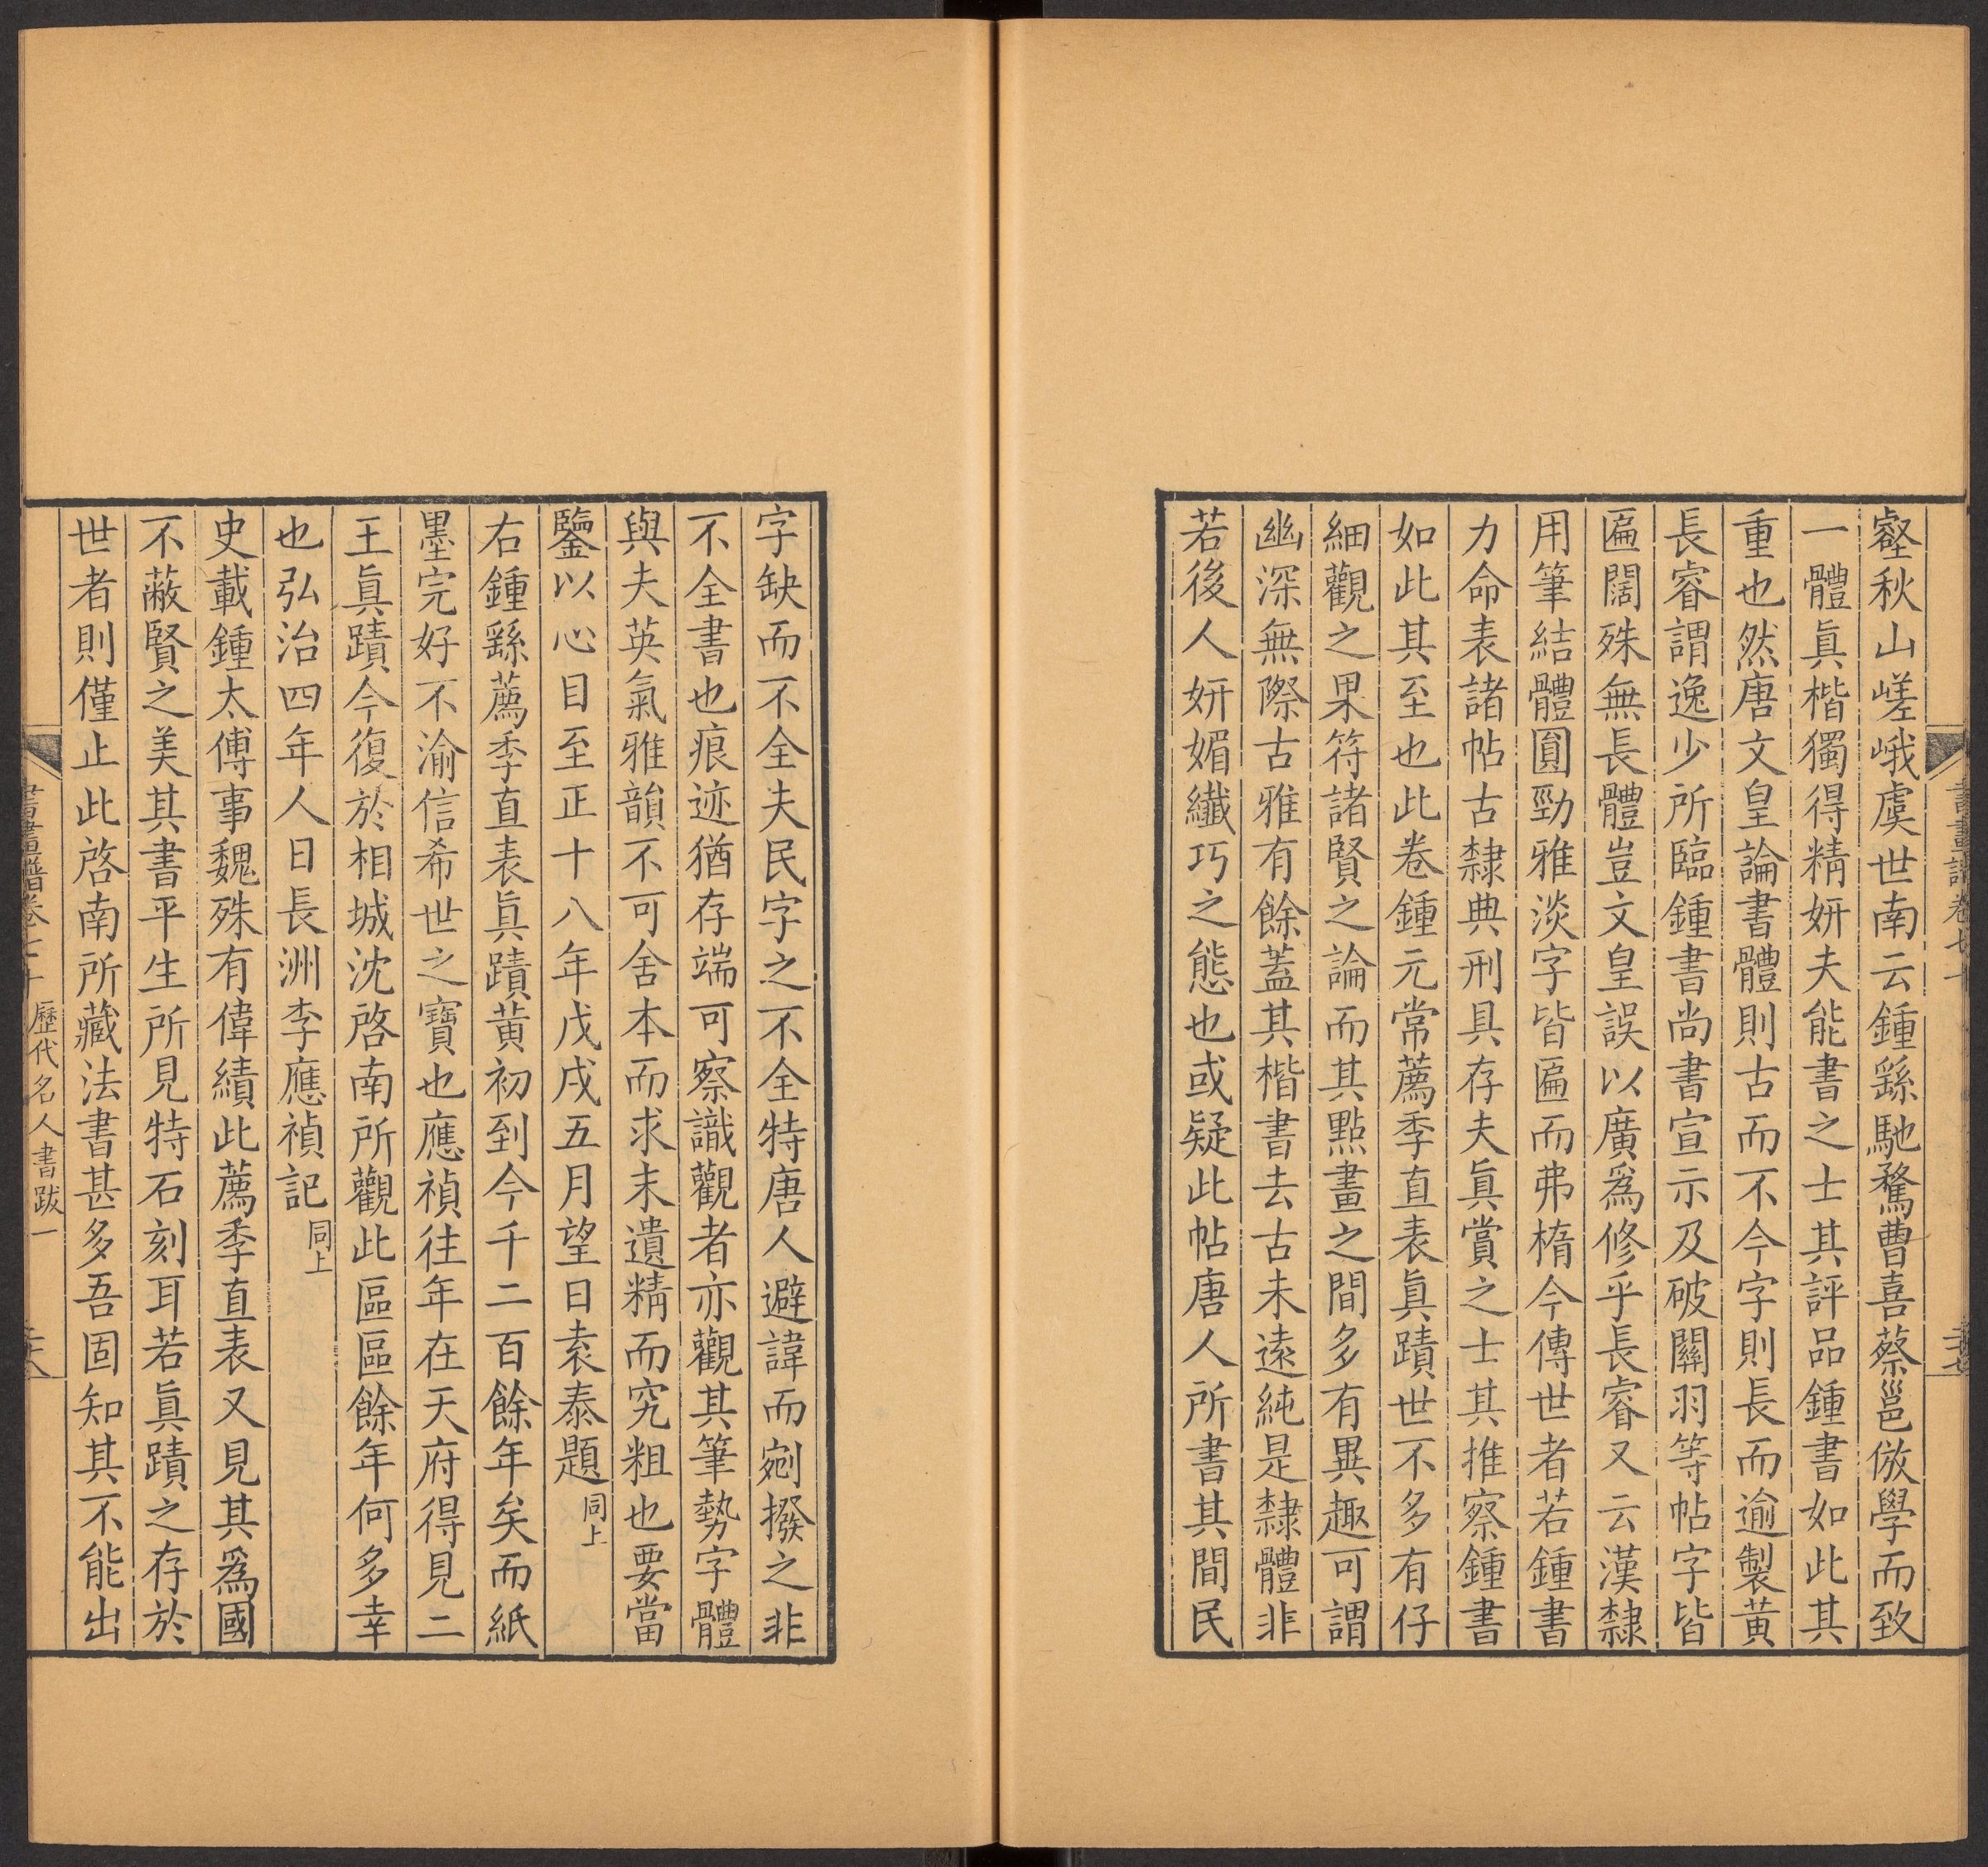 壑秋山嵯峨虞世南云鍾繇馳騖曹喜蔡邕倣學而致
一體眞楷獨得精妍夫能書之士其評品鍾書如此其
重也然唐文皇論書體則古而不今字則長而逾製黃
長睿謂逸少所臨鍾書尚書宣示及破關羽等帖字皆
匾闊殊無長體豈文皇誤以廣爲修乎長睿又云漢隸
用筆結體圓勁雅淡字皆匾而弗橢今傳世者若鍾書
力命表諸帖古隸典刑具存夫眞賞之士其推察鍾書
如此其至也此卷鍾元常薦季直表眞蹟世不多有仔
細觀之果符諸賢之論而其點畫之間多有異趣可謂
幽深無際古雅有餘蓋其楷書去古未遠純是隸體非
若後人妍媚纖巧之態也或疑此帖唐人所書其間民
字缺而不全夫民字之不全特唐人避諱而剜撥之非
不全書也痕迹猶存端可察識觀者亦觀其筆勢字體
與夫英氣雅韻不可舍本而求末遺精而究粗也要當
鑒以心目至正十八年戊戌五月望日袁泰題同上
右鍾繇薦季直表眞蹟黃初到今千二百餘年矣而紙
墨完好不渝信希世之寶也應禎往年在天府得見二
王眞蹟今復於相城沈啓南所觀此區區餘年何多幸
也弘治四年人日長洲李應禎記同上
史載鍾太傅事魏殊有偉績此薦季直表又見其爲國
不蔽賢之美其書平生所見特石刻耳若眞蹟之存於
世者則僅止此啓南所藏法書甚多吾固知其不能出
書畫譜卷七十 歷代名人書跋一